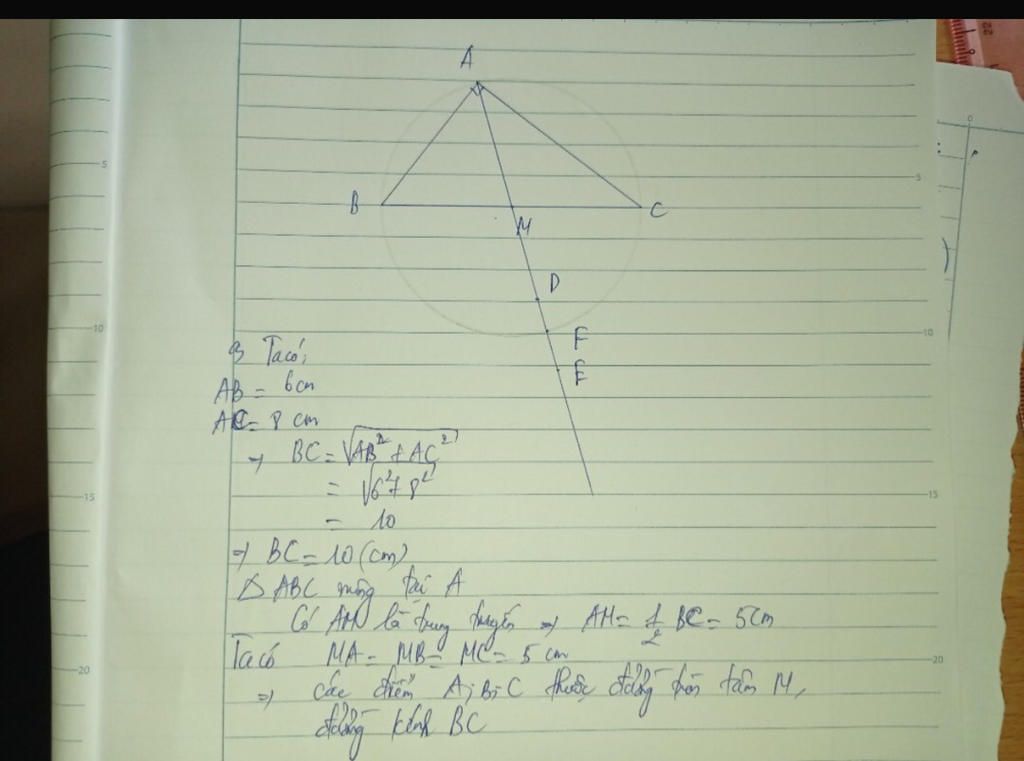 A
B
C
M
D
F
E
3 Ta có:
AB = 6cm
AC = 8 cm
⇒ BC = √AB² + AC²
= √6² + 8²
= 10
⇒ BC = 10 (cm)
Δ ABC vuông tại A
Có AM là trung tuyến ⇒ AM = 1/2 BC = 5cm
Ta có MA = MB = MC = 5 cm
⇒ các điểm A; B; C thuộc đường tròn tâm M,
đường kính BC
5
10
15
20
5
10
15
20
22
0